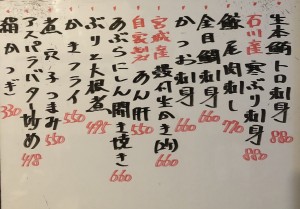 生本鮪トロ刺身 880
石川産寒ぶり刺身 880
鯨尾肉刺し 770
金目鯛刺身 660
かつお刺身 660
宮城産殻付生かき(2ヶ) 660
自家製あん肝 550
あぶらにしん開き焼き 660
ぶり大根煮 495
かきフライ 550
煮穴子つまみ 550
アスパラバター炒め 418
絹かつぎ 330